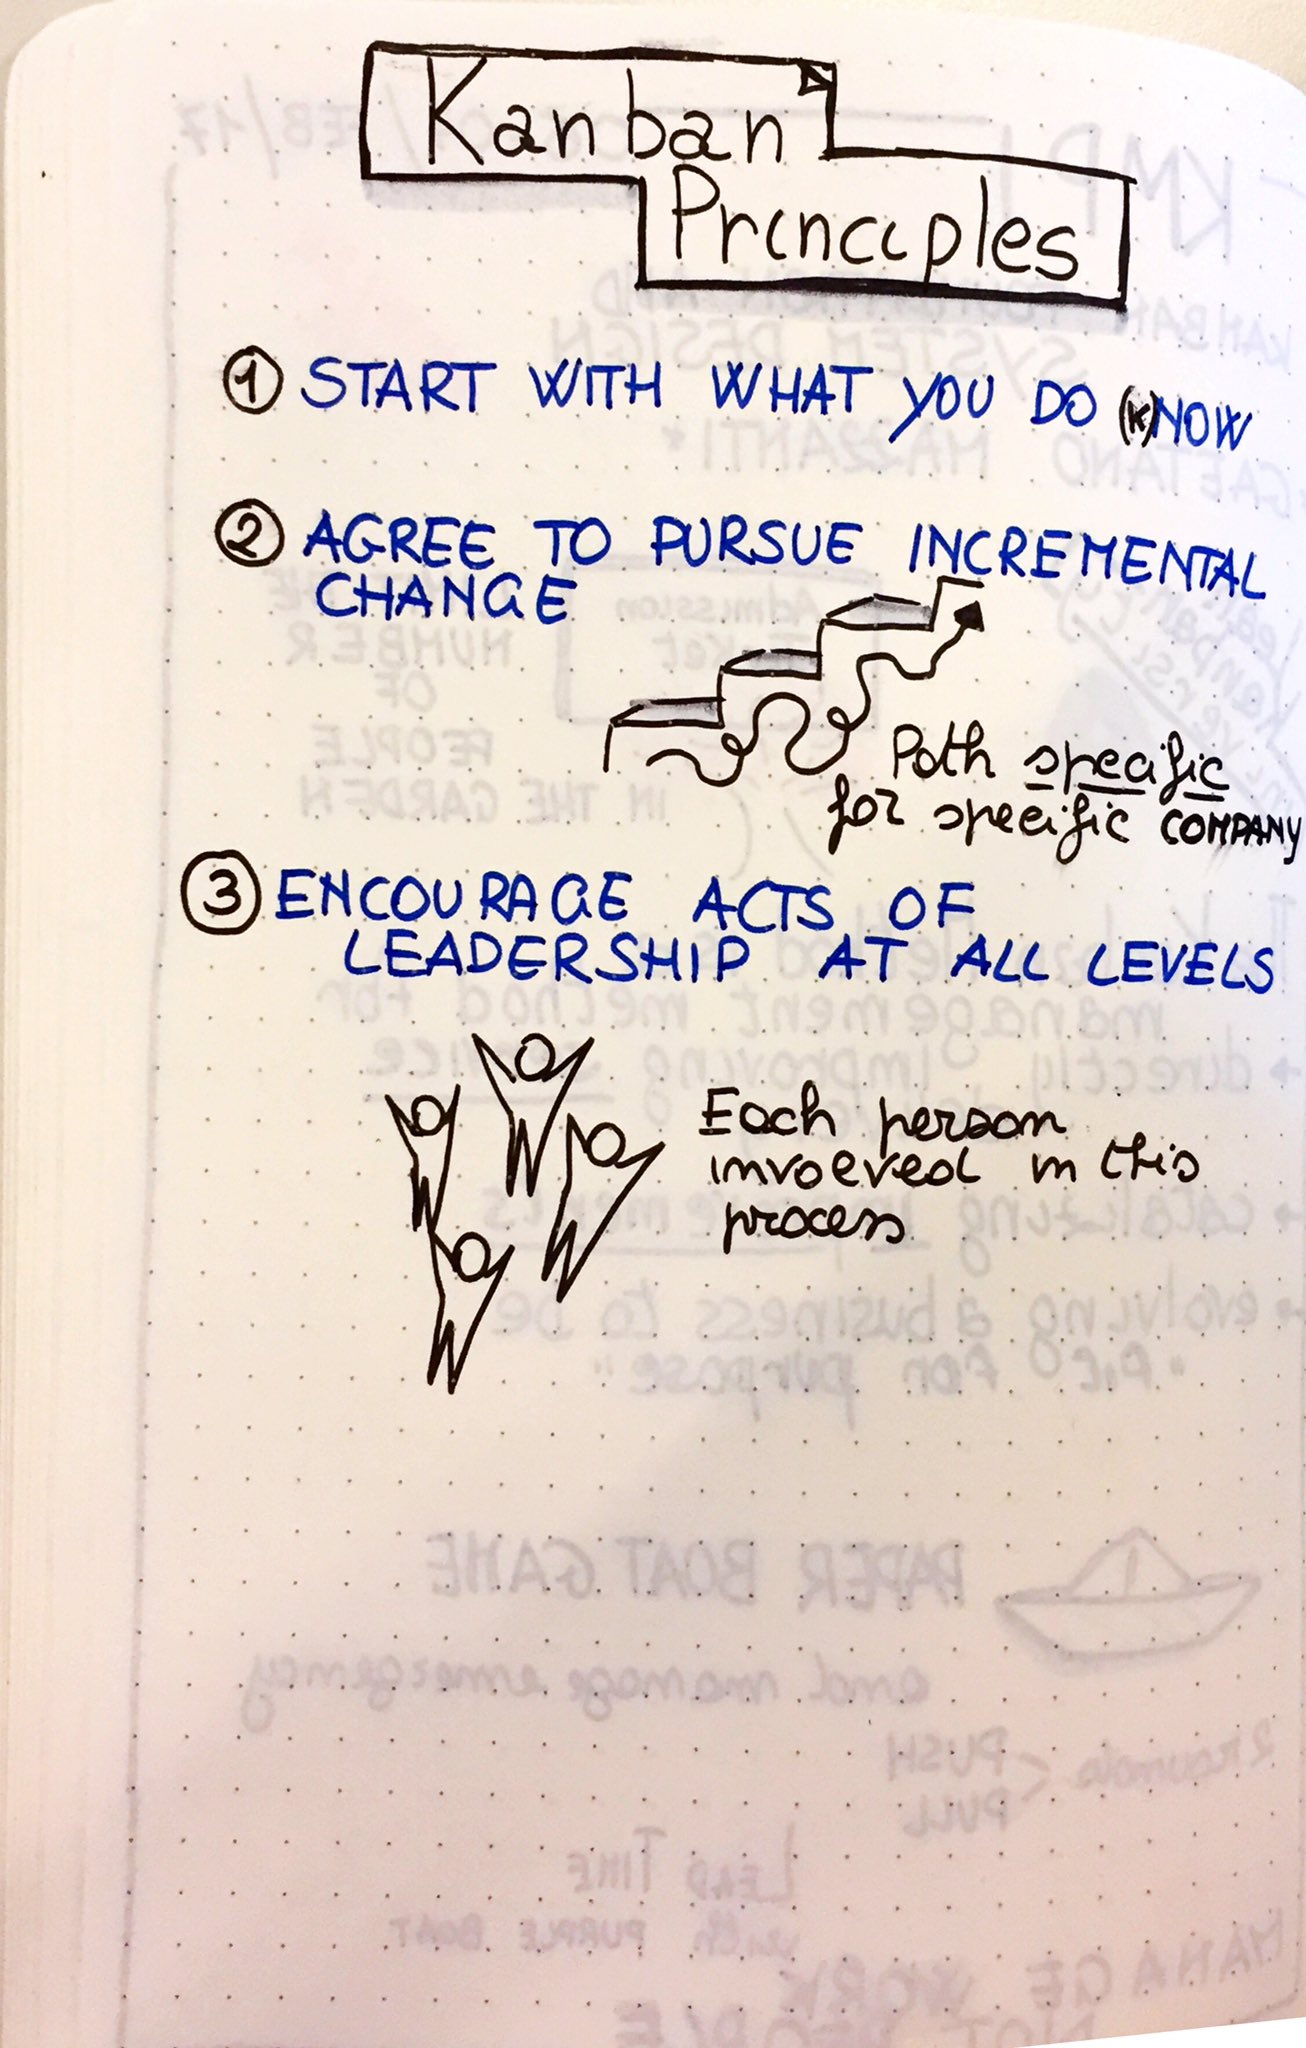 Kanban
Principles
1 START WITH WHAT YOU DO (K)NOW
2 AGREE TO PURSUE INCREMENTAL
CHANGE
Path specific
for specific COMPANY
3 ENCOURAGE ACTS OF
LEADERSHIP AT ALL LEVELS
Each person
involved in this
process